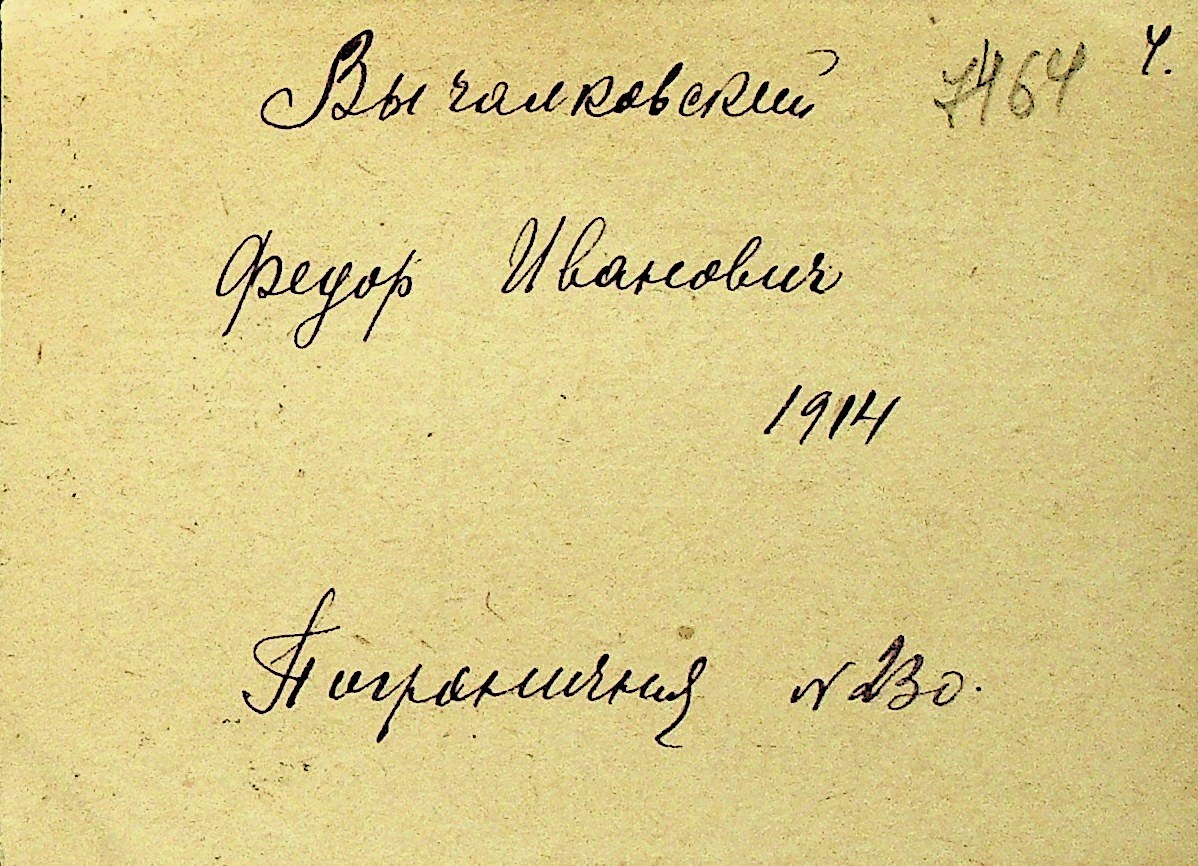 Вычалковский 7464 4.
Федор Иванович
1914
Пограничная N 230.